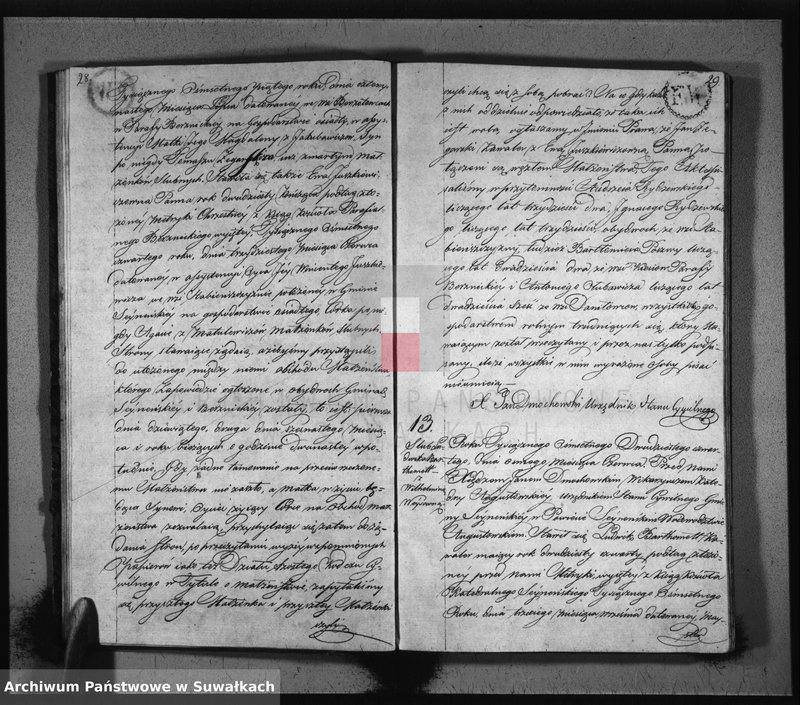 28.
Tysiącznego Ośmsetnego piątego roku, dnia cztery-
nastego, miesiąca Lipca datowaney, we wsi
w Parafij Berznickiey na Gospodarstwie osiadły, w assy-
stencyi Matki swey Magdaleny z Jakubowiczow, Syn
po niegdy Tomaszu Zegarskim już zmarłym Mał-
żonków Slubnych. Stawiła się także Ewa Juszkiewi-
czowna Panna, rok dwudziesty kończąca podług zło-
żoney Metryki Chrzestney z Ksiąg Kościoła Parafial-
nego Berznickiego wyjętey, Tysiącznego Ośmsetnego
czwartego roku, dnia trzydziestego miesiąca Czerwca
datowaney, w assystencyi Oyca Jey Wincentego Juszkie-
wicza we wsi położoney, w Gminie
Seyneńskiey na gospodarstwie osiadłego, Córka pomię-
dzy Agatą z Matulewiczów Małżonków slubnych.
Strony stawaiące żądaią, ażebyśmy przystąpili
do ułożonego między niemi obchodu Małżeństwa
którego Zapowiedzi ogłoszone w obydwóch Gminach
Seyneńskiey i Berznickiey zostały, to iest: pierwsza
dnia dziewiątego, druga dnia szesnastego, miesią-
ca i roku bieżących o godzinie dwunastey w po-
łudnie. Gdy żadne tamowanie na przeciw rzeczone-
mu Małżeństwu nie zaszło, a Matka, w życiu bę-
dąca Synowi, Oyciec żyjący Córce na Obchod Mał-
żeństwa zezwalaią. Przychylaiąc się zatem do żą-
dania Stron, po przeczytaniu wyżey wspomnionych
Papierow iako też Działu szostego Kodexu Cy-
wilnego w Tytule o Małżeństwie, zapytaliśmy
się przyszłego Małżonka i przyszłey Małżonki
czyli
29
czyli chcą się z sobą pobrać? Na co gdy każde
z nich oddzielnie odpowiedziało, że taka ich
iest wola, ogłaszamy w Imieniu Prawa, że Jan Ze-
garski, Kawaler z Ewą Juszkiewiczowną, Panną, po-
łączeni są węzłem Małżeństwa. Tego Akt spi-
saliśmy w przytomności Andrzeia Rydzewskiego
liczącego lat trzydzieści dwa, Ignacego Rydzewskie-
go liczącego lat trzydzieści, obydwóch ze wsi
tudzież Bartłomieia liczą-
cego lat dwadzieścia dwa ze wsi Parafij
Berznickiey i Antoniego liczącego lat
dwadzieścia sześć ze wsi wszystkich go-
spodarstwem rolnym trudniących się, który sta-
waiącym został przeczytany i przez nas tylko podpi-
sany, ileże wszystkie w nim wyrażone Osoby pisać
nie umieią.—
X. Jan Dmochowski Urzędnik Stanu Cywilnego
13.
Slub: Lu-
dwika Bar-
thomett
z
Wilhelminą
Roku Tysiącznego Ośmsetnego Dwudziestego czwar-
tego, dnia ósmego miesiąca Czerwca. Przed nami
Xiędzem Janem Dmochowskim Wikaryuszem Kate-
dry Augustowskiey, Urzędnikiem Stanu Cywilnego Gmi-
ny Seyneńskiey w Powiecie Seyneńskim Wojewodztwie
Augustowskim. Stawił się Ludwik Barthomett, Ka-
waler maiący rok dwudziesty czwarty podług złożo-
ney przed nami Metryki wyjętey z Ksiąg Kościoła
Katedralnego Seyneńskiego Tysiącznego Ośmsetnego
Roku, dnia trzeciego, miesiąca Września datowaney,
Archiwum Państwowe w Suwałkach